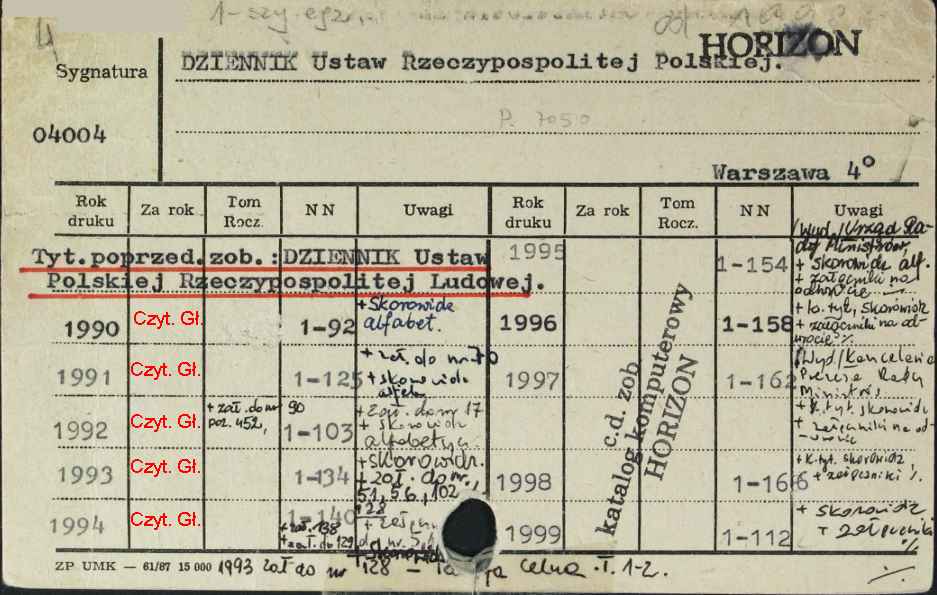 1-szy egz.
HORIZON
Sygnatura
DZIENNIK Ustaw Rzeczypospolitej Polskiej.
04004
P. 7050
Warszawa 4°
Rok druku
Za rok
Tom Rocz.
NN
Uwagi
Rok druku
Za rok
Tom Rocz.
NN
Uwagi
Tyt.poprzed.zob.:DZIENNIK Ustaw
Polskiej Rzeczypospolitej Ludowej.
1990 Czyt. Gł. 1-92 + Skorowidz
alfabet.
1991 Czyt. Gł. 1-125 + zał. do nr 70
+ skorowidz
1992 Czyt. Gł. + zał. do nr 90
poz. 452, 1-103 + zał. do nr 17
+ skorowidz
alfabetycz.
1993 Czyt. Gł. 1-134 + skorowidz.
+ zał. do nr.,
51, 56, 102
128
1994 Czyt. Gł. 1-140
+ zał. 138
+ zał. do 129
+ skorowidz
1995 1-154 /Wyd./Urząd Ra-
dy Ministrów
+ skorowidz alf.
+ załączniki na
odwrocie
1996 1-158 + k. tyt, skorowidz
+ załączniki na od-
wrocie %
1997 1-162 /Wyd/Kancelaria
Prezesa Rady
Ministrów
+ k.tyt. skorowidz
+ załączniki na od-
wrocie
1998 1-166 + k.tyt. skorowidz,
+ załączniki %
1999 1-112 + skorowidz
+ załączniki
%
c.d. zob
katalog komputerowy
HORIZON
ZP UMK — 61/87 15 000 1993 zał do nr 128 — Celna . T. 1-2.